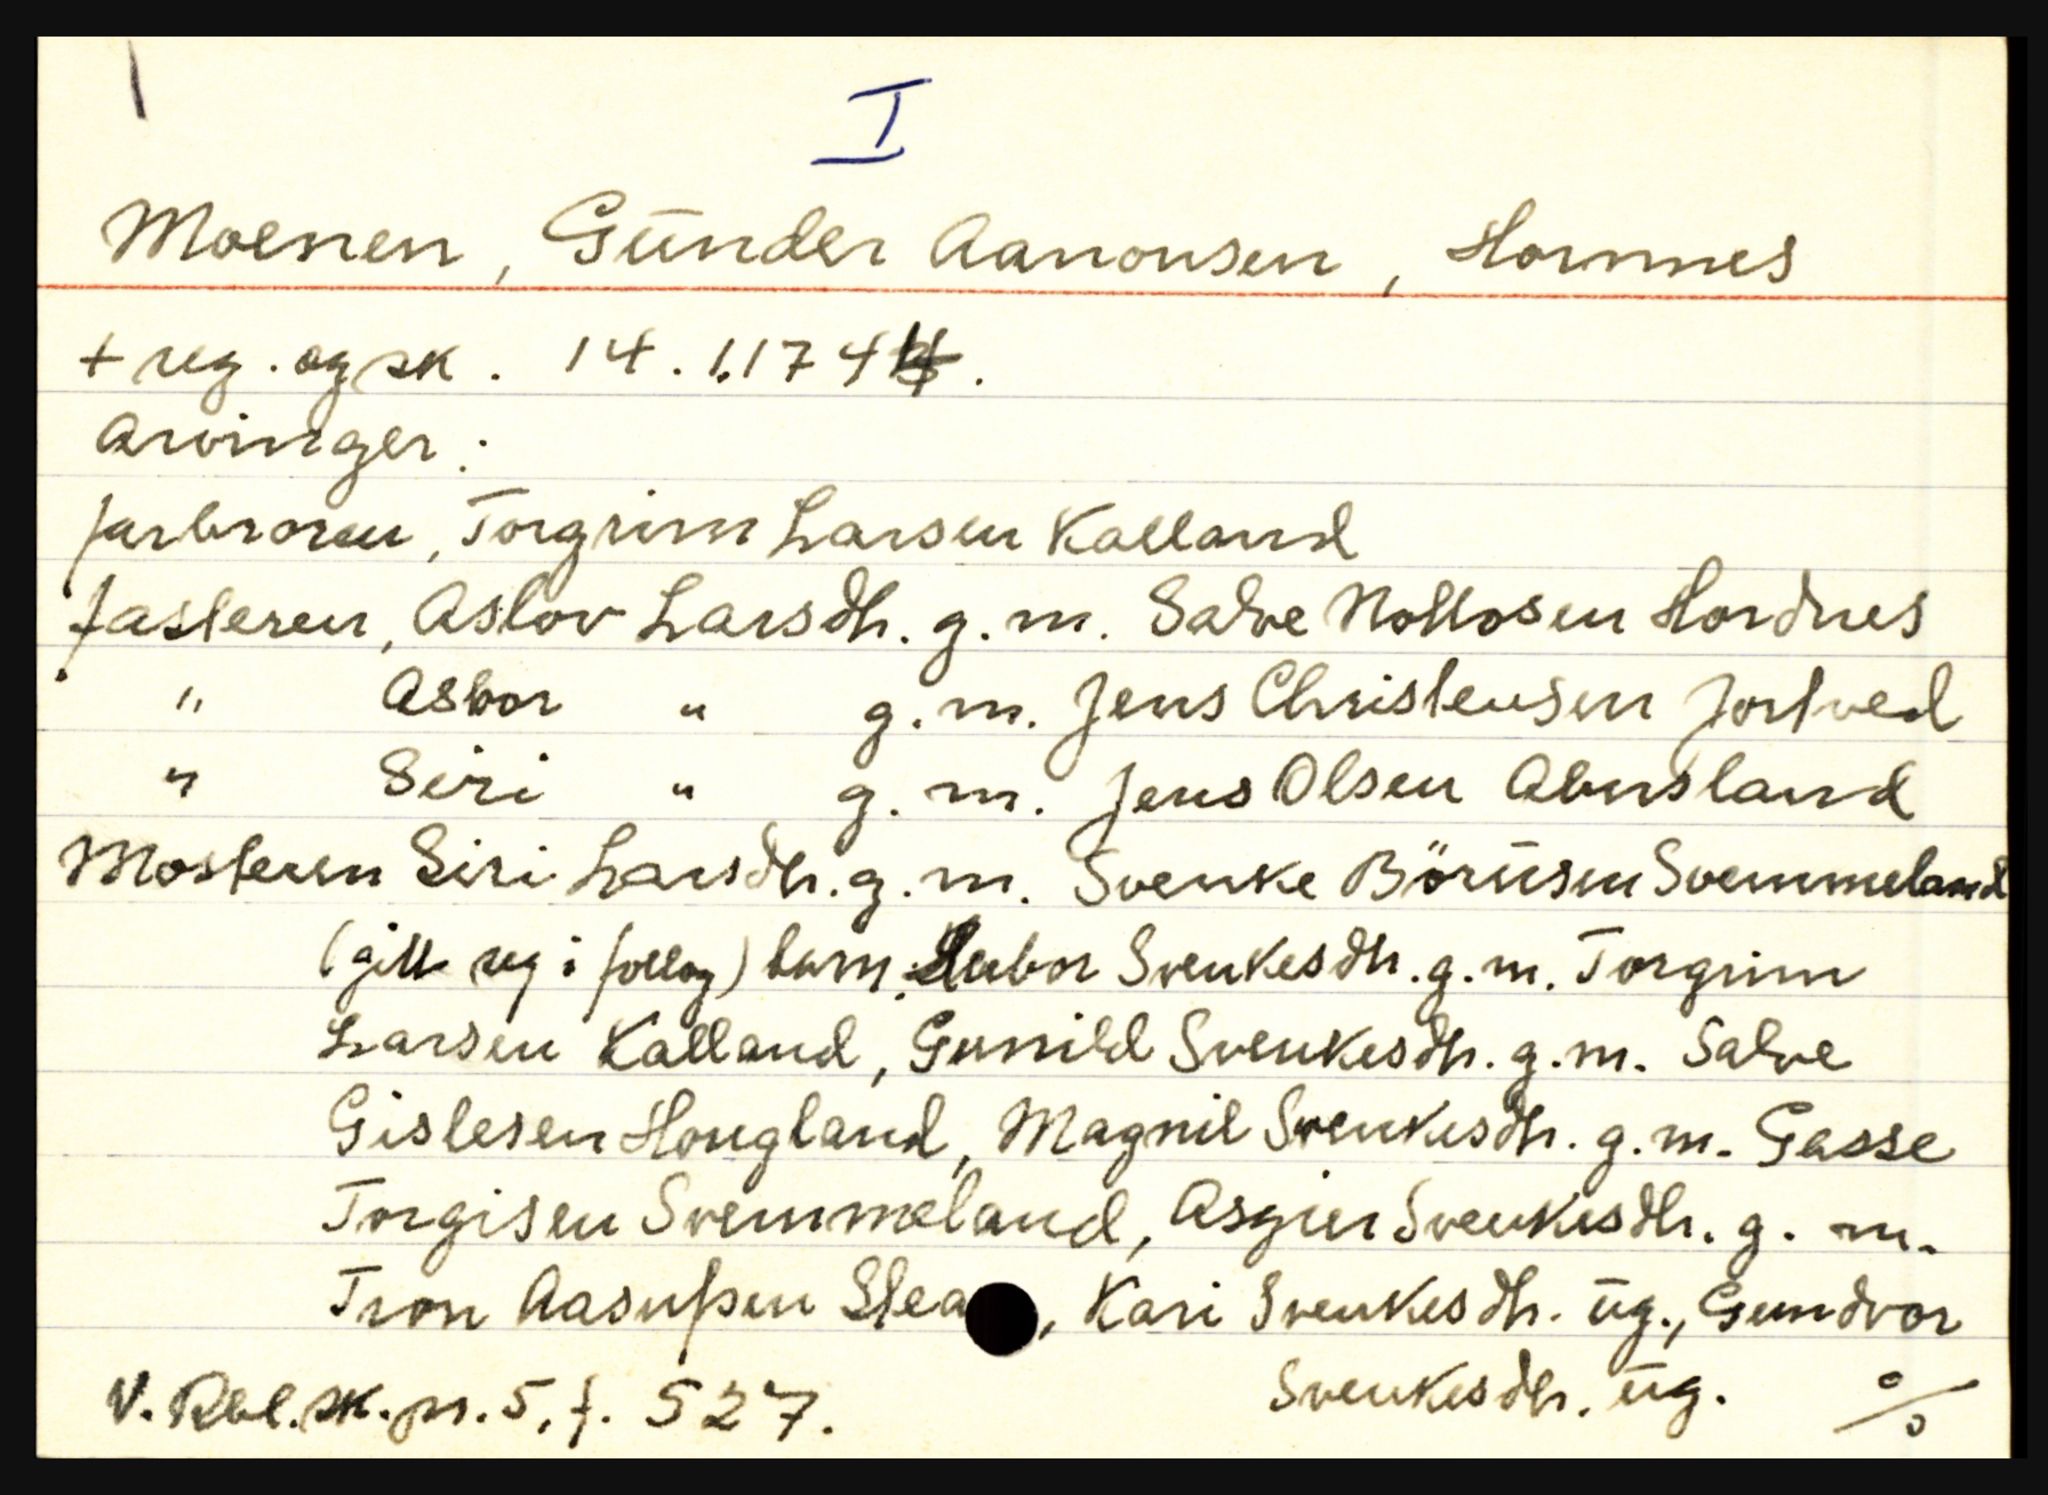 I
Moenen, Gunder Aanonsen, Hornnes
+ reg. og sk. 14.1.1744.
Arvinger:
farbroren, Torgrim Larsen Kalland
fasteren, Aslov Larsdh. g.m. Salve Nottosen Hordnes
" Asbor " g.m. Jens Christensen Fortved
" Siri " g.m. Jens Olsen Abusland
Mosteren Siri Larsdh. g.m. Svenke Börusen Svemmeland
(gitt reg i follog) barn: Svenkesdh. g.m. Torgrim
Larsen Kalland, Gunild Svenkesdh. g.m. Salve
Gislesen Hougland, Magnil Svenkesdh. g.m. Gasse
Torgisen Svemmeland, Asgier Svenkesdh. g.m.
Tron Aasulfsen, Kari Svenkesdh. ug., Gundvor
Svenkesdh. ug.
V. Rbl. sk. pr. 5, f. 527.
%